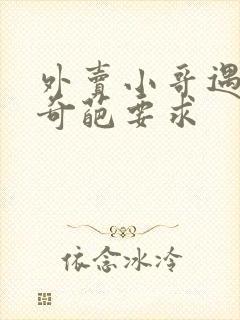 外賣小哥遇
奇葩要求
依念冰冷